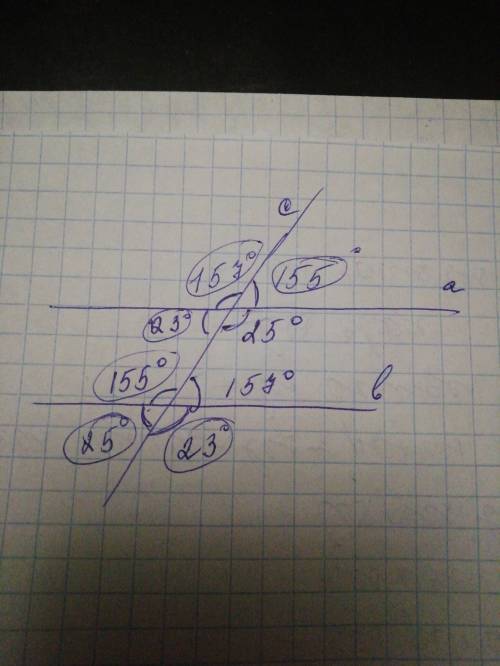 c
157° 155°
a
23° 25°
155° 157° b
25° 23°